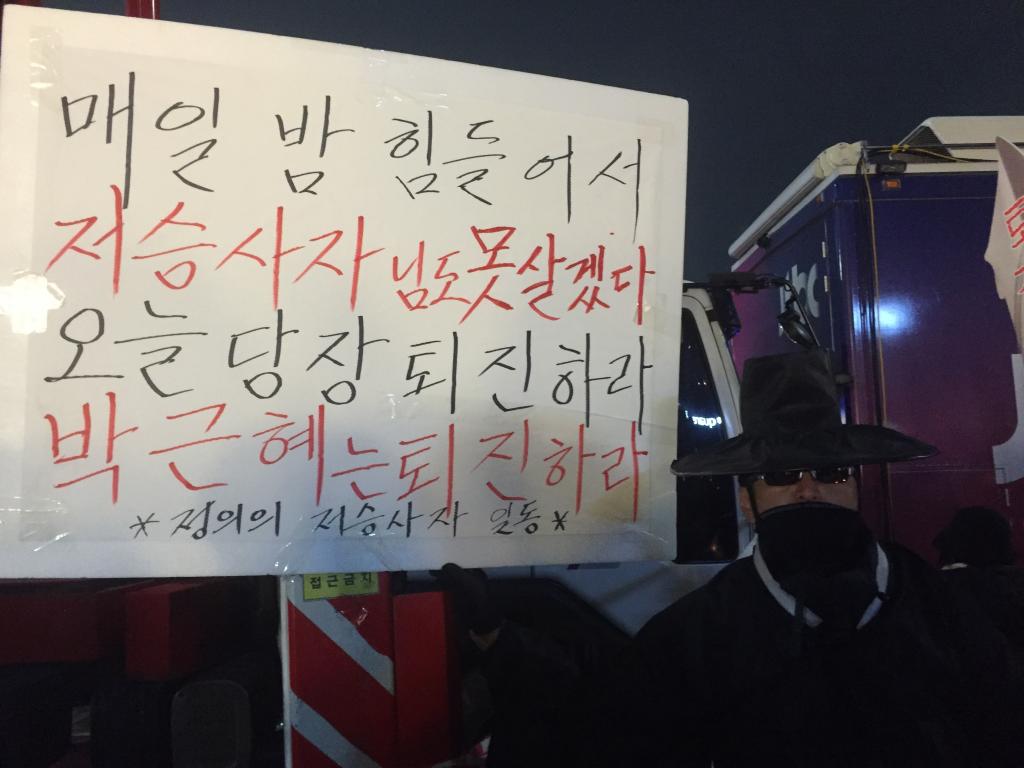 매일 밤 힘들어서
저승사자님도 못살겠다
오늘 당장 퇴진하라
박근혜는 퇴진하라
* 정의의 저승사자 일동 *
접근금지